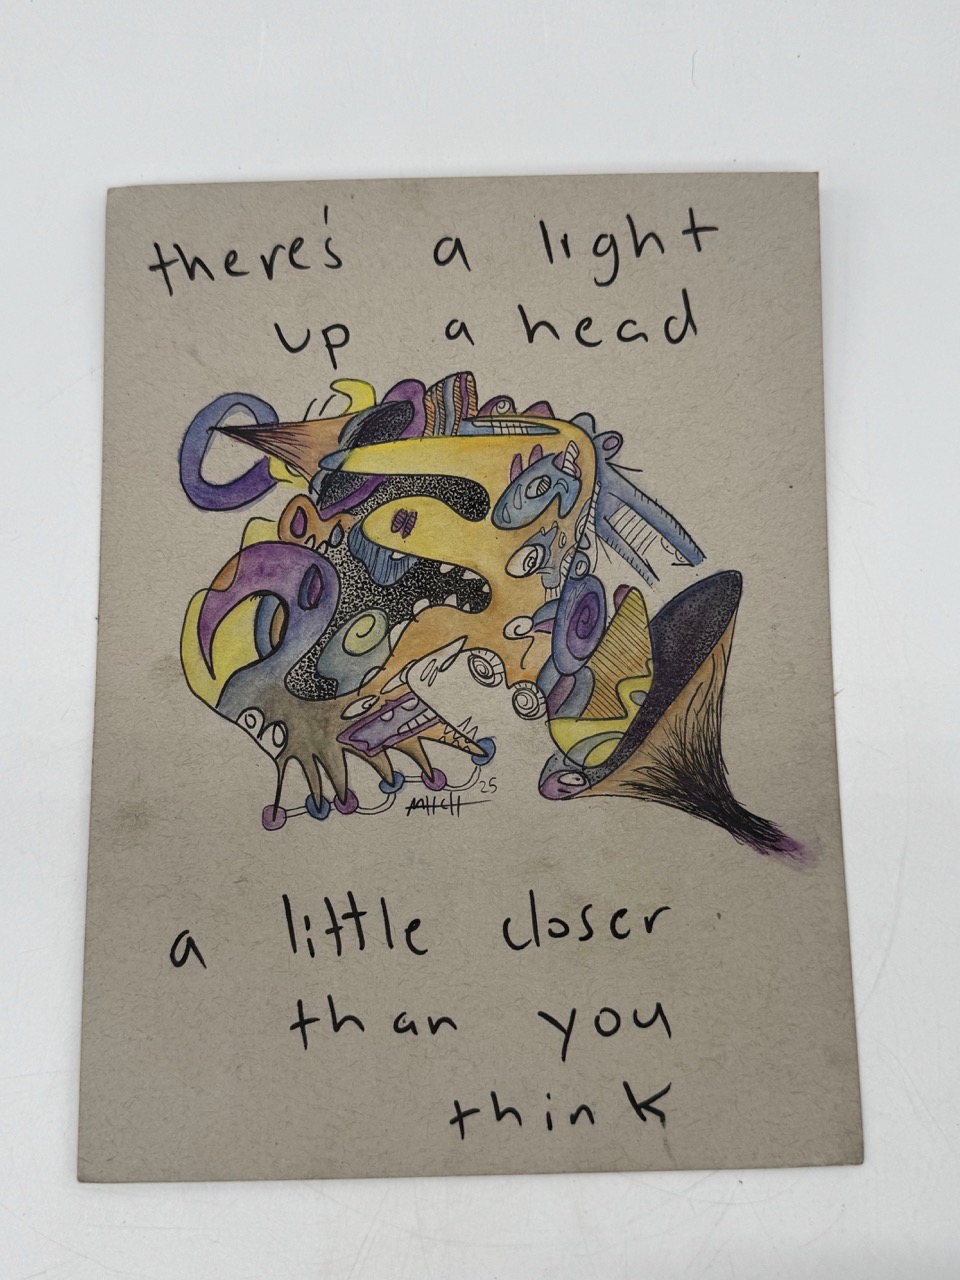 there's a light
up a head
MITCH 25
a little closer
than you
think